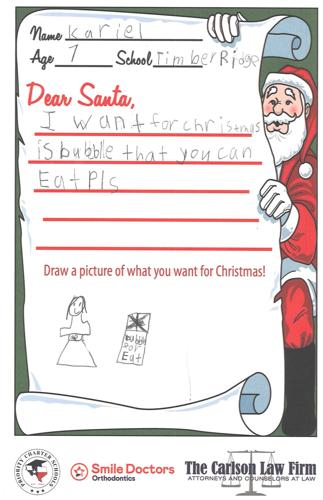 Name Kariel
Age 7 School Timber Ridge
Dear Santa,
I want for christmas
is bubble that you can
Eat Pls
Draw a picture of what you want for Christmas!
bubble
for
Eat
PRIORITY CHARTER SCHOOLS
Smile Doctors
Orthodontics
The Carlson Law Firm
ATTORNEYS AND COUNSELORS AT LAW